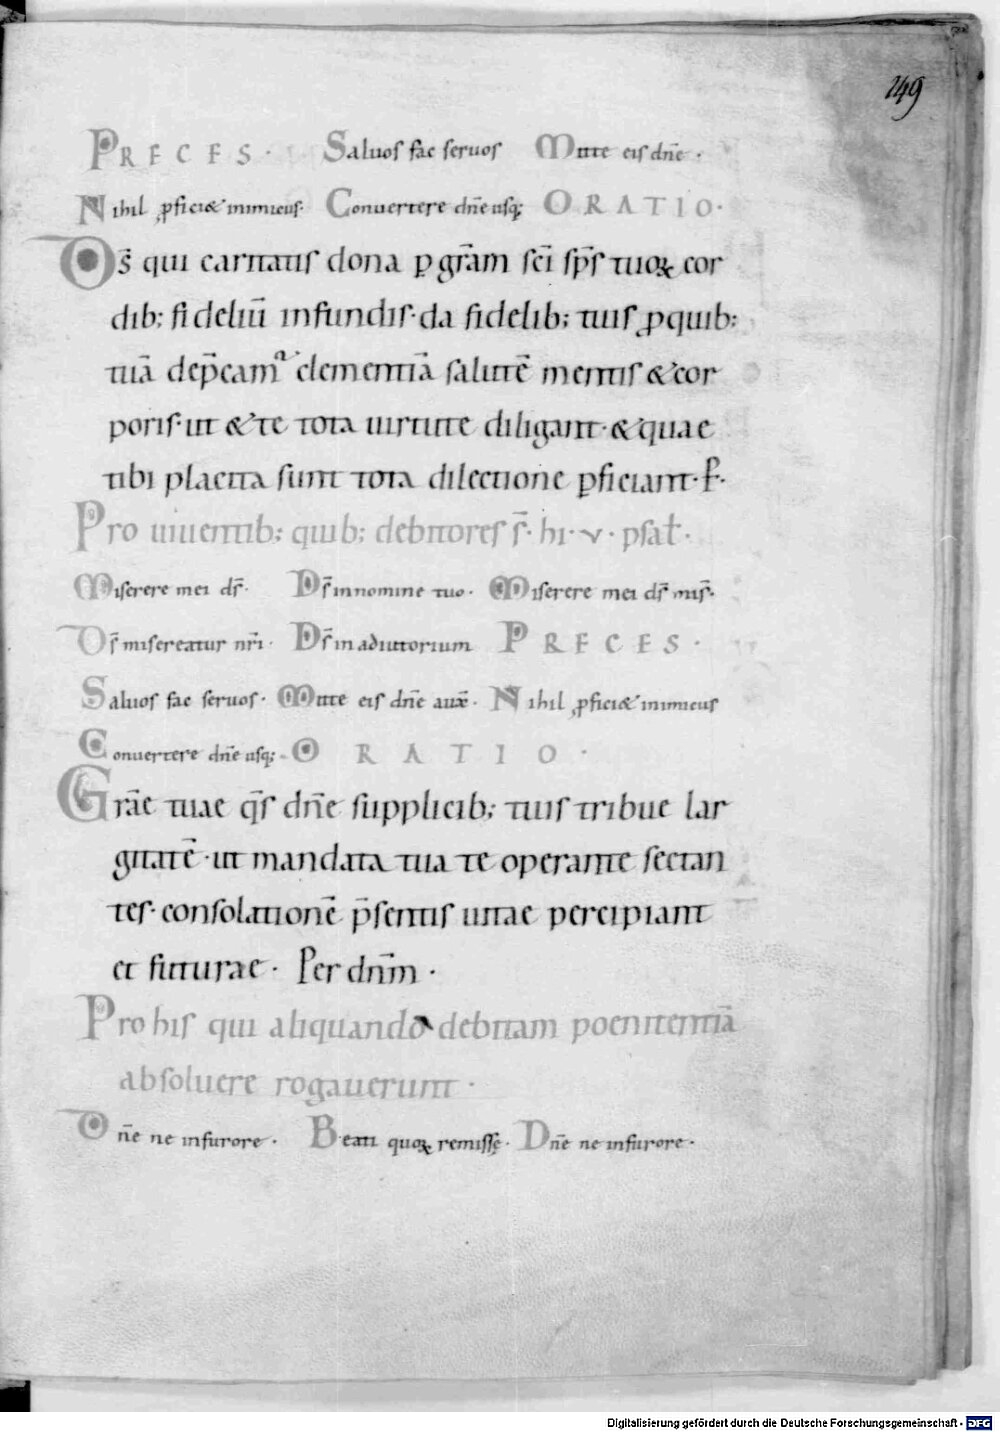 149
PRECES· Saluos fac seruos Mitte eis dn̄e·
Nihil ꝓficiat inimicus· Conuertere dn̄e usq; ORATIO·
Ds̄ qui caritatis dona ꝑ gr̄am sc̄i sp̄s tuoꝝ cor
dib; fideliū infundis· da fidelib; tuis ꝓquib;
tuā dep̄camᷓ clementiā salutē mentis & cor
poris· ut & te tota uirtute diligant· & quae
tibi placita sunt tota dilectione ꝑficiant· P̄·
Pro uiuentib; quib; debitores s̄· hi· v· psal̄·
Miserere mei ds̄· Ds̄ innomine tuo· Miserere mei ds̄ mis̄·
Ds̄ misereatur nr̄i· Ds̄ inadiutorium PRECES·
Saluos fac seruos· Mitte eis dn̄e aux̄· Nihil ꝓficiat inimicus
Conuertere dn̄e usq;· ORATIO·
Gr̄ae tuae q̄s dn̄e supplicib; tuis tribue lar
gitatē· ut mandata tua te operante sectan
tes· consolationē p̄sentis uitae percipiant
et futurae· Per dn̄m·
Pro his qui aliquando debitam poenitentiā
absoluere rogauerunt·
Dn̄e ne infurore· Beati quoꝝ remissę· Dn̄e ne infurore·
Digitalisierung gefördert durch die Deutsche Forschungsgemeinschaft - DFG